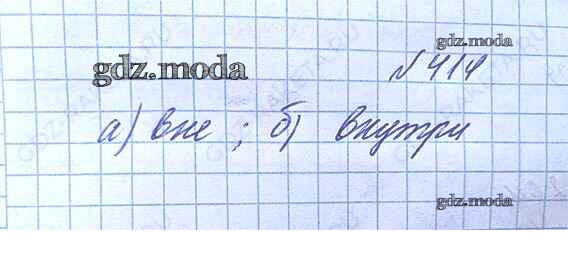 gdz.moda
gdz.moda
№ 414
а) вне ; б) внутри
gdz.moda